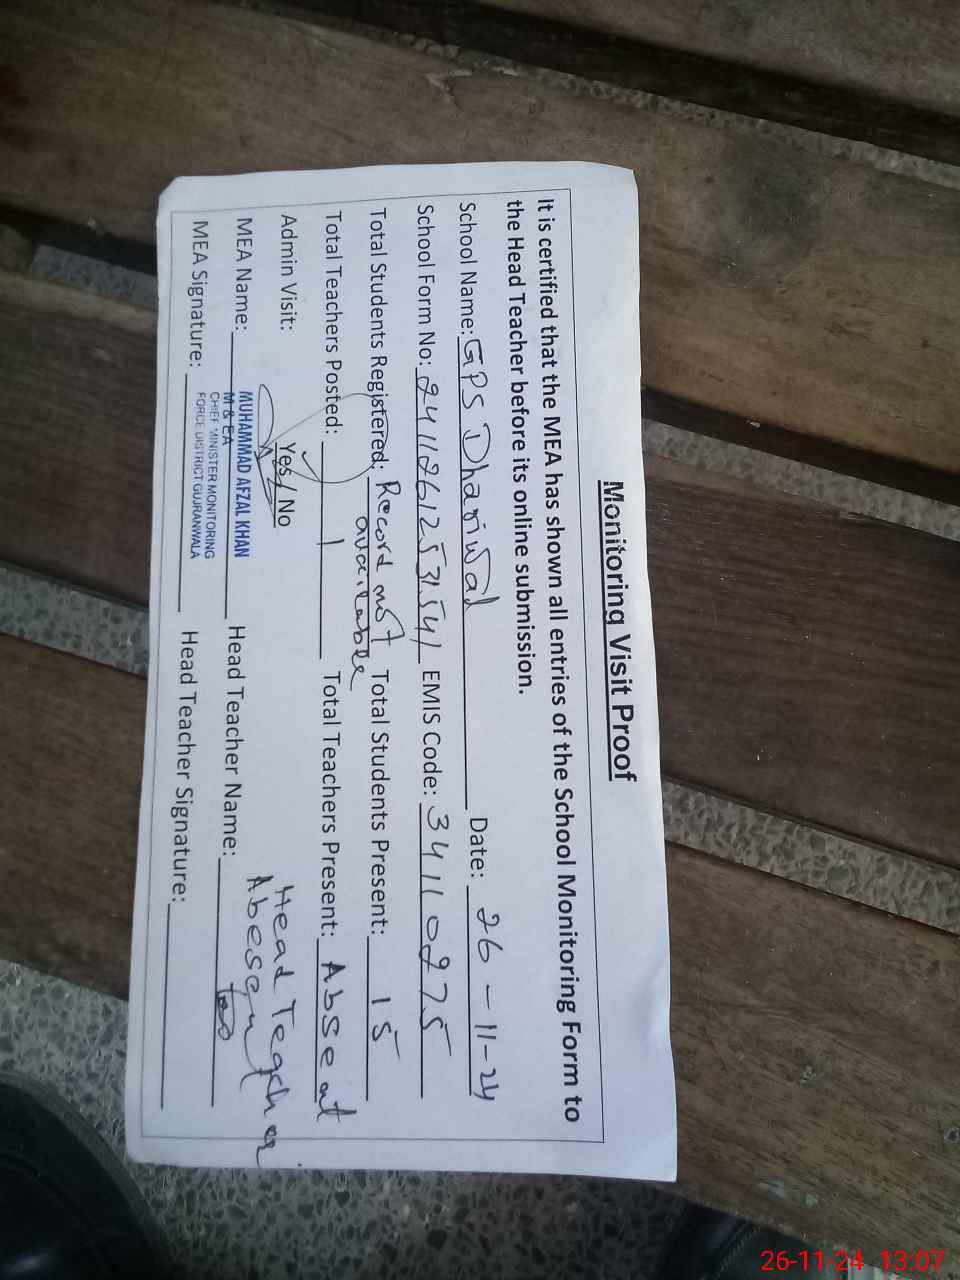 Monitoring Visit Proof
It is certified that the MEA has shown all entries of the School Monitoring Form to
the Head Teacher before its online submission.
School Name: GPS Dhariwal Date: 26-11-24
School Form No: 241126125 31541 EMIS Code: 34110275
Total Students Registered: Record not available Total Students Present: 15
Total Teachers Posted: 1 Total Teachers Present: Absent
Admin Visit: Yes / No
Head Teacher
Abesent
MEA Name: Head Teacher Name:
MUHAMMAD AFZAL KHAN
M & EA
CHIEF MINISTER MONITORING
FORCE DISTRICT GUJRANWALA
MEA Signature: Head Teacher Signature:
26-11-24 13:07